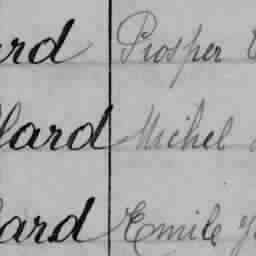 ard Prosper
lard Michel
lard Emile